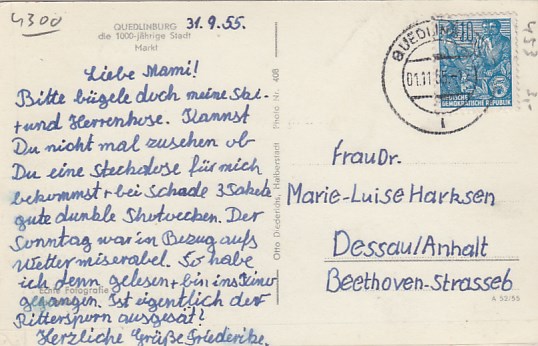 4300
QUEDLINBURG
die 1000-jährige Stadt
Markt
31.9.55.
Liebe Mami!
Bitte bügele doch meine Ski-
+ und Herrenhose. Kannst
Du nicht mal zusehen ob
Du eine Steckdose für mich
bekommst + bei Schade 3 Pakete
gute dunkle
Sonntag war in Bezug aufs
Wetter miserabel. So habe
ich denn gelesen + bin ins Kino
gegangen. Ist eigentlich der
Rittersporn ausgesät?
Herzliche Grüße Friederike.
Echte Fotografie
Otto Diederichs, Halberstadt Photo Nr. 408
QUEDLIN
01.11.55
10
DEUTSCHE
DEMOKRATISCHE REPUBLIK
453
Frau Dr.
Marie-Luise Harksen
Dessau/Anhalt
Beethoven-Strasse 6
A 52/55